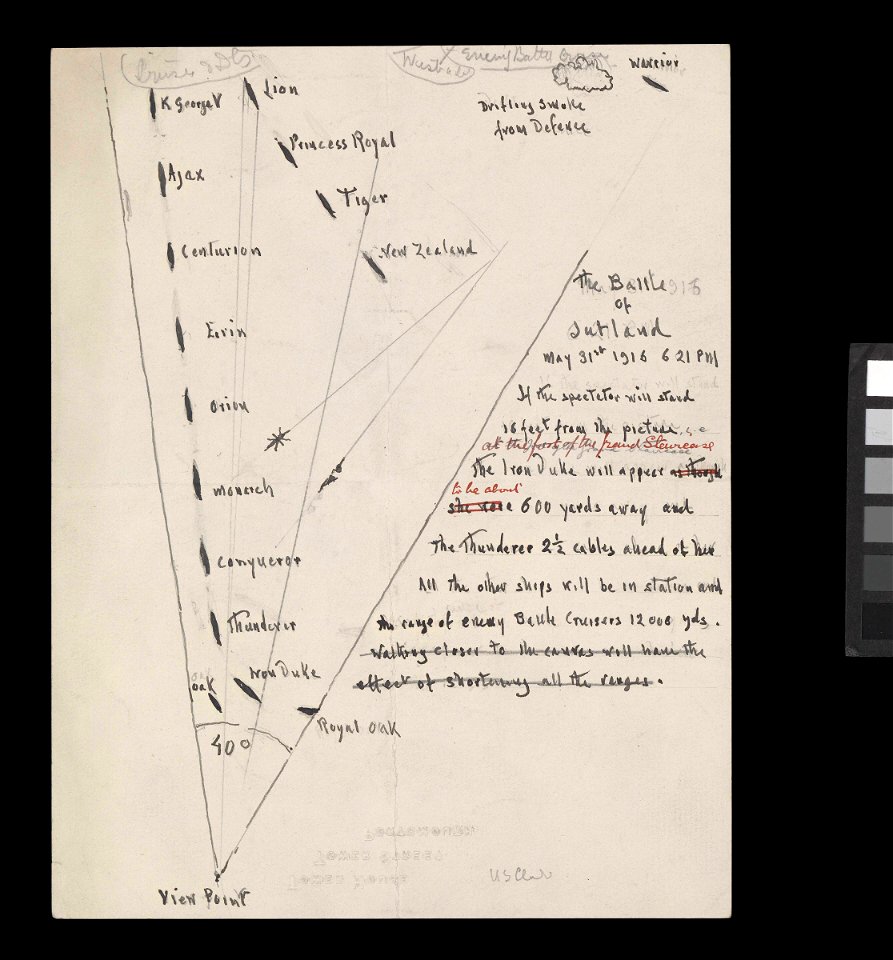 Cruiser & D
Enemy Battle
K George V
Lion
Warrior
Drifting Smoke
from Defence
Princess Royal
Ajax
Tiger
Centurion
New Zealand
The Battle
of
Jutland
May 31st 1916 6 21 PM
Erin
If the spectator will stand
Orion
16 feet from the picture
at the foot of the grand Staircase
The Iron Duke will appear as though
to be about
she were 600 yards away and
Monarch
the Thunderer 2½ cables ahead of her
Conqueror
All the other ships will be in station and
Thunderer
the range of enemy Battle Cruisers 12000 yds.
Walking closer to the canvas will have the
effect of shortening all the ranges.
Oak
Iron Duke
Royal Oak
40°
View Point